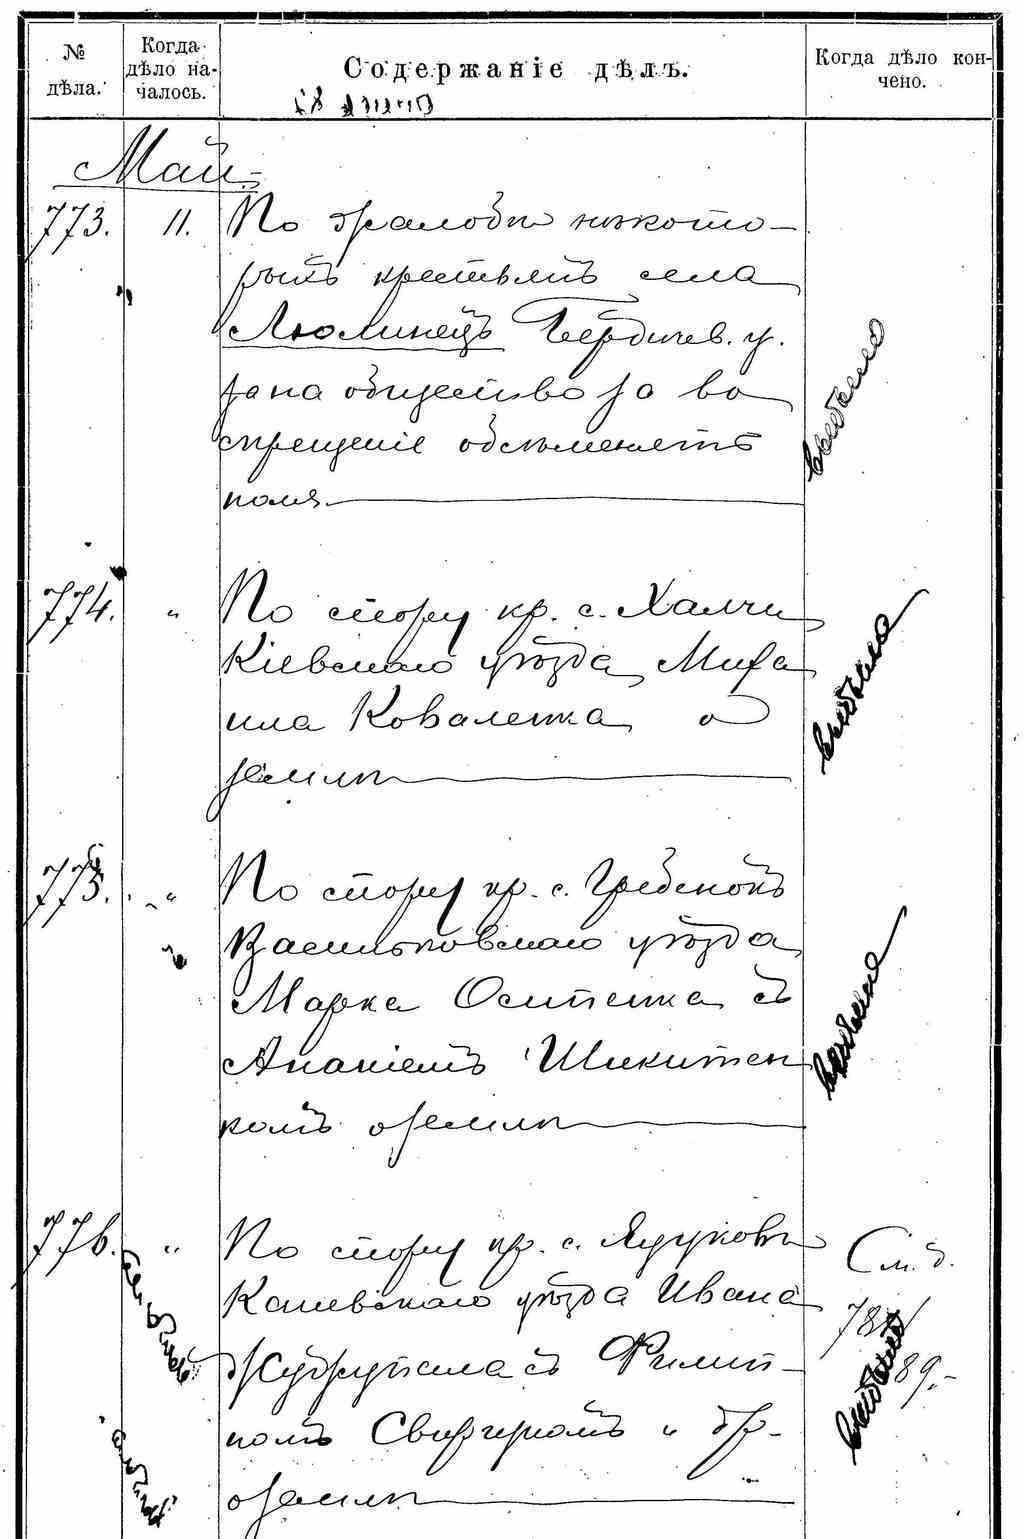 № дѣла.
Когда дѣло на-чалось.
Содержаніе дѣлъ.
Когда дѣло кон-чено.
Май.
773. 11. По жалобѣ нѣкото-
рыхъ крестьянъ села
Люлинецъ Бердичев. у.
на общество за во
спрещеніе обсѣменять
поля
774. " По спору кр. с. Халчи
Кіевскаго уѣзда Миха
ила Коваленка о
землѣ
775. " По спору кр. с. Гребенокъ
Васильковскаго уѣзда
Марка Осипенка съ
Ананіемъ Шикитен
комъ о землѣ
776. " По спору кр. с.
Каневскаго уѣзда Ивана
съ Филип-
помъ и др.
о землѣ
См. д.
89.